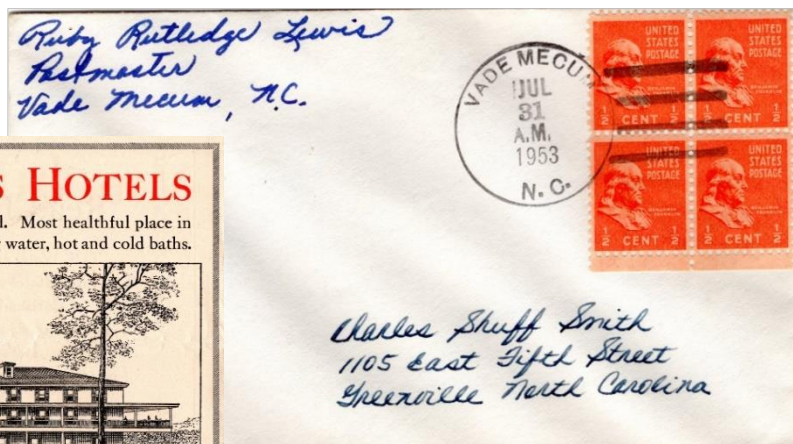 Ruby Rutledge Lewis
Postmaster
Vade Mecum, N.C.
VADE MECUM
JUL
31
A.M.
1953
N. C.
UNITED
STATES
POSTAGE
BENJAMIN
FRANKLIN
1/2 CENT 1/2
UNITED
STATES
POSTAGE
BENJAMIN
FRANKLIN
1/2 CENT 1/2
UNITED
STATES
POSTAGE
BENJAMIN
FRANKLIN
1/2 CENT 1/2
UNITED
STATES
POSTAGE
BENJAMIN
FRANKLIN
1/2 CENT 1/2
S HOTELS
l. Most healthful place in
water, hot and cold baths.
Charles Shuff Smith
1105 East Fifth Street
Greenville North Carolina